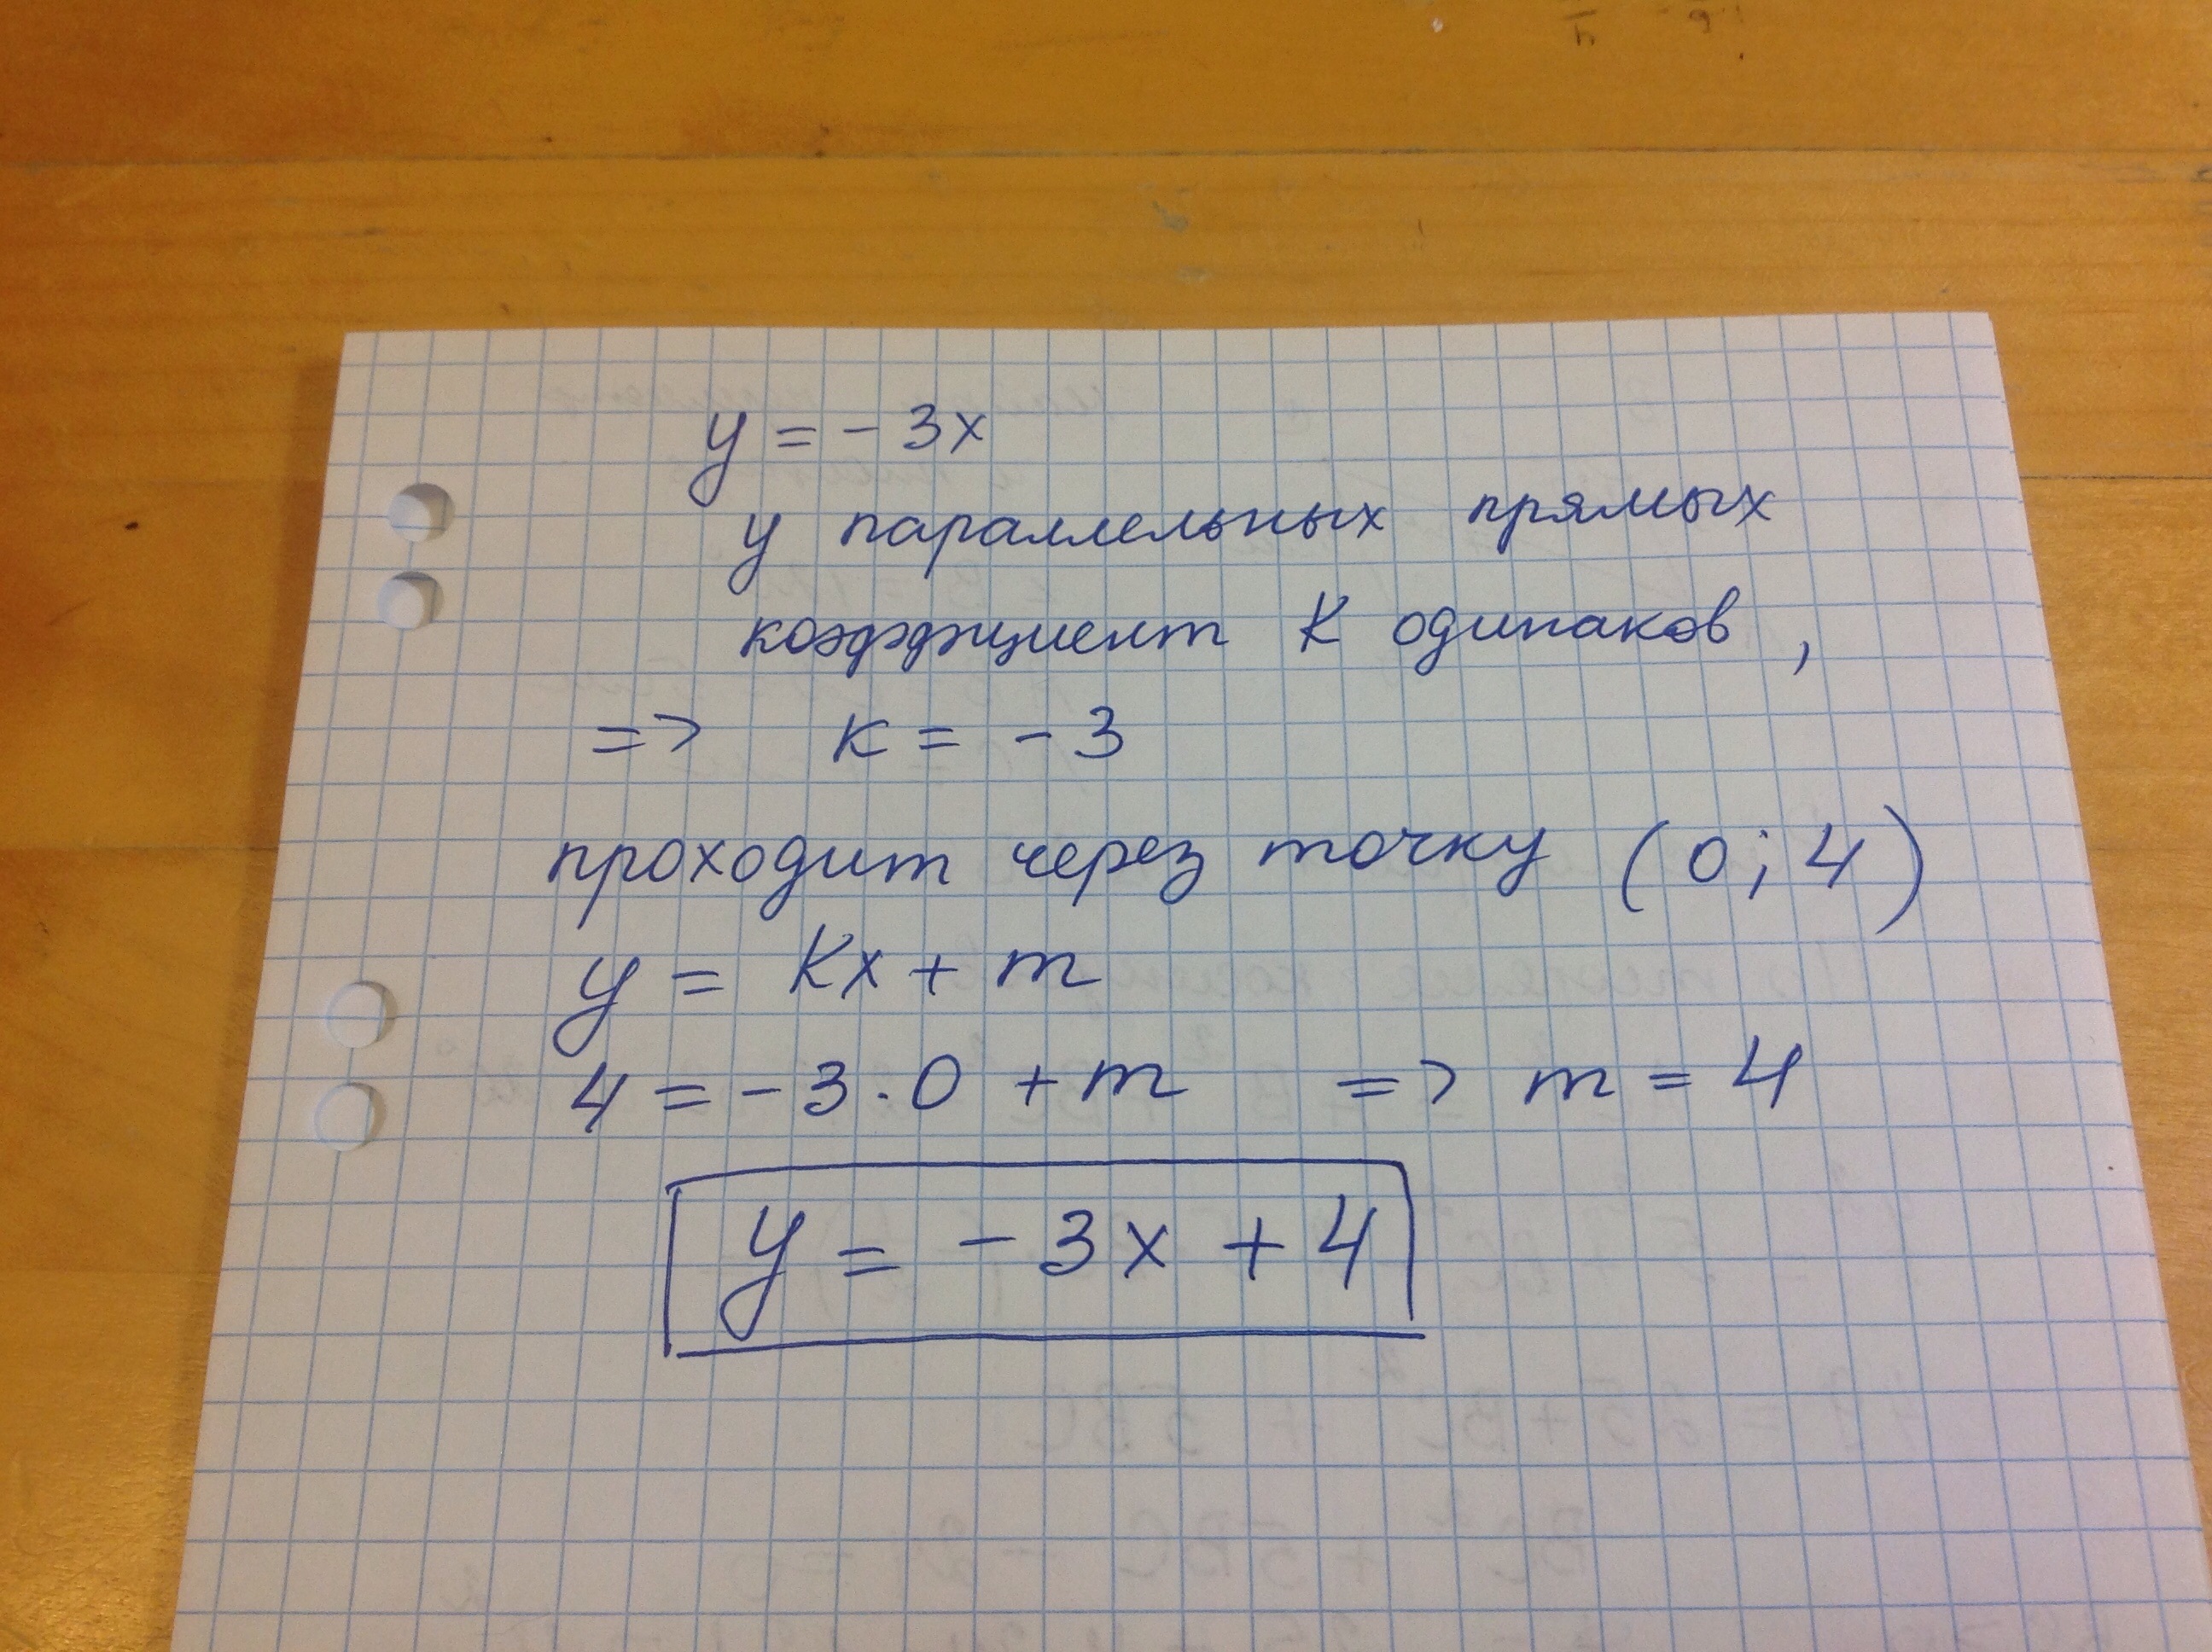 y = - 3x
у параллельных прямых
коэффициент K одинаков ,
=> к = - 3
проходит через точку ( 0 ; 4 )
y = Kx + m
4 = - 3 . 0 + m => m = 4
y = - 3x + 4